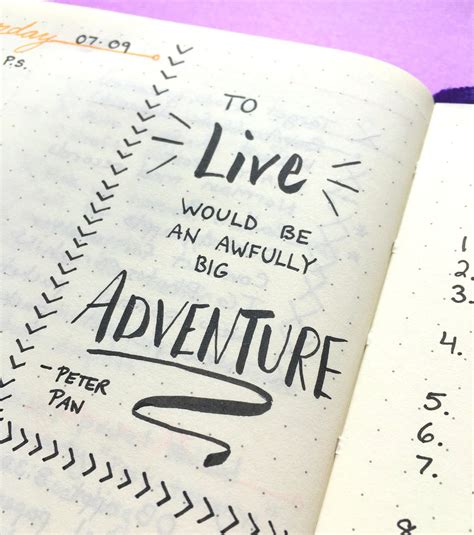 07.09
P.S.
TO
Live
WOULD BE
AN AWFULLY
BIG
ADVENTURE
- PETER
PAN
1
2.
3.
4.
5.
6.
7.
8